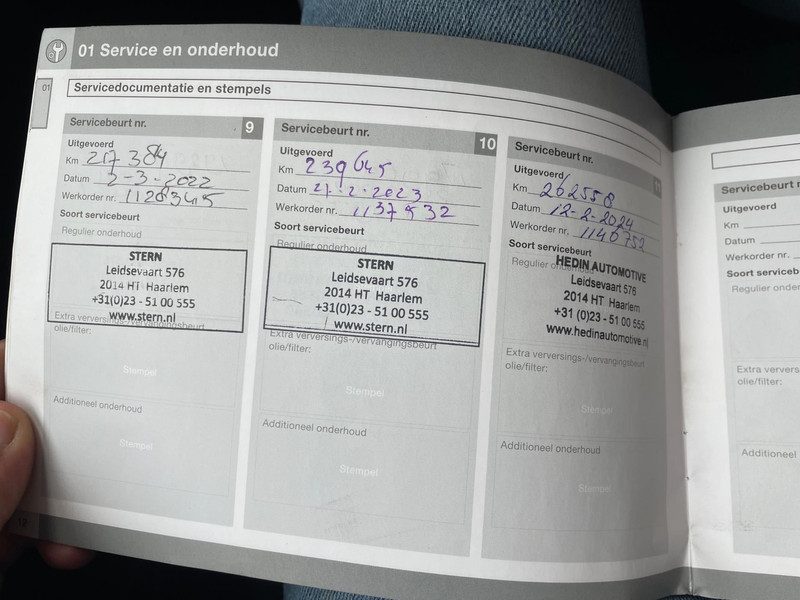 01 Service en onderhoud
01
Servicedocumentatie en stempels
Servicebeurt nr. 9
Uitgevoerd
Km 217384
Datum 2-3-2022
Werkorder nr. 1128345
Soort servicebeurt
Regulier onderhoud
STERN
Leidsevaart 576
2014 HT Haarlem
+31(0)23 - 51 00 555
www.stern.nl
Extra verversings-/vervangingsbeurt
olie/filter:
Stempel
Additioneel onderhoud
Stempel
Servicebeurt nr. 10
Uitgevoerd
Km 239645
Datum 27-2-2023
Werkorder nr. 1137532
Soort servicebeurt
Regulier onderhoud
STERN
Leidsevaart 576
2014 HT Haarlem
+31(0)23 - 51 00 555
www.stern.nl
Extra verversings-/vervangingsbeurt
olie/filter:
Stempel
Additioneel onderhoud
Stempel
Servicebeurt nr. 11
Uitgevoerd
Km 262558
Datum 12-2-2024
Werkorder nr. 1140752
Soort servicebeurt
Regulier onderhoud
HEDIN AUTOMOTIVE
Leidsevaart 576
2014 HT Haarlem
+31 (0)23 - 51 00 555
www.hedinautomotive.nl
Extra verversings-/vervangingsbeurt
olie/filter:
Stempel
Additioneel onderhoud
Stempel
Servicebeurt
Uitgevoerd
Km
Datum
Werkorder nr.
Soort serviceb
Regulier onder
Extra ververs
olie/filter:
Additioneel